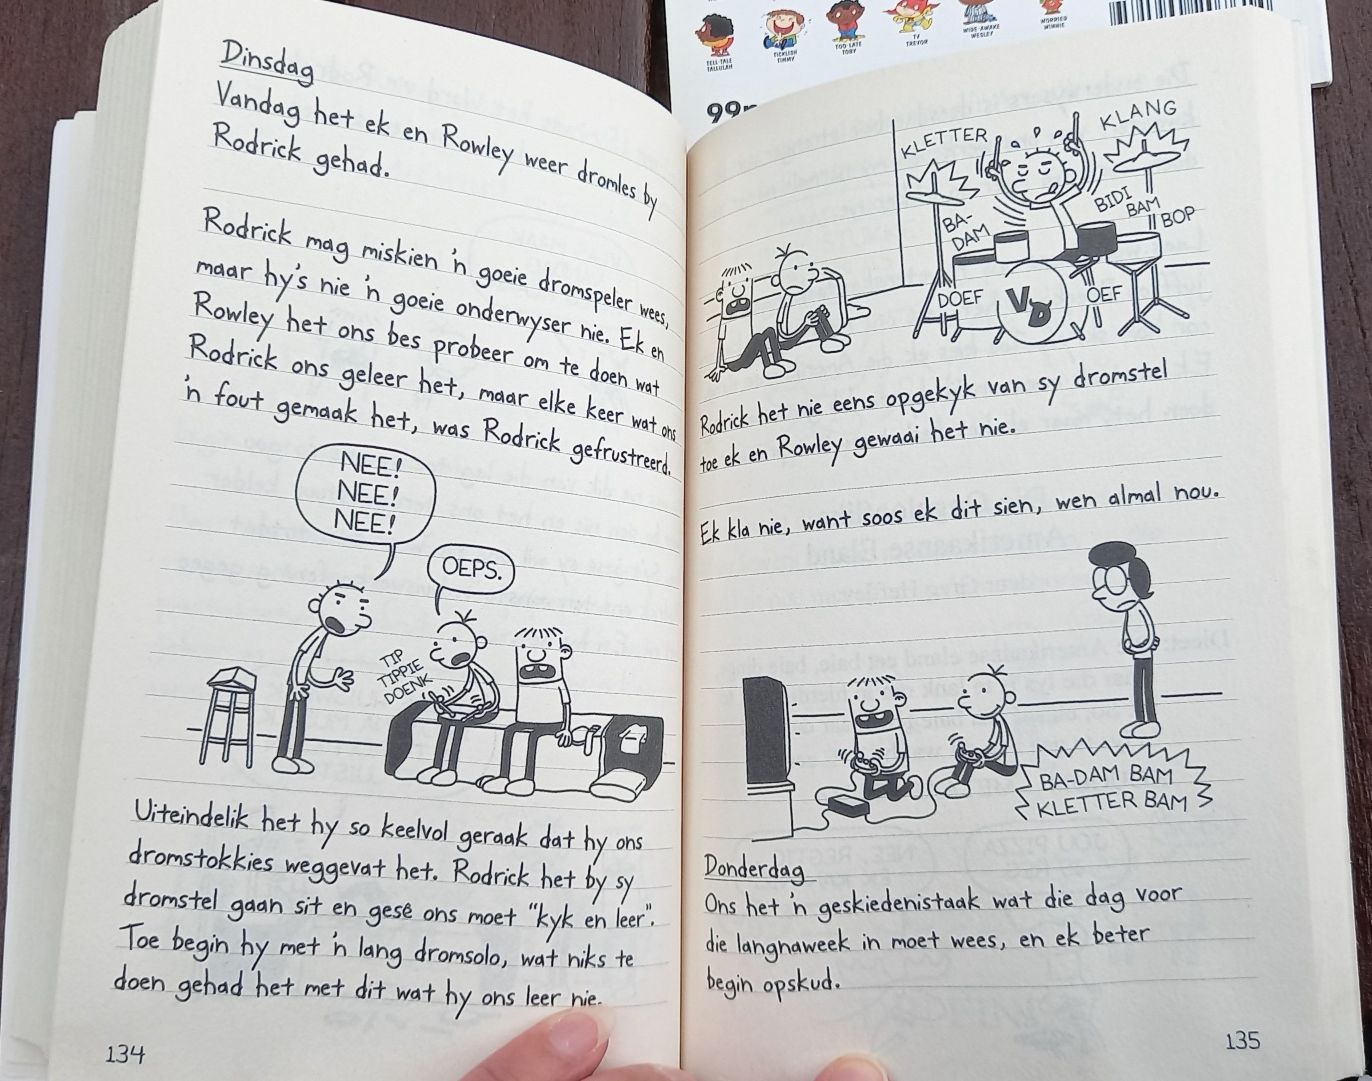 TELL-TALE
TALLULAH
TICKLISH
TIMMY
TOO-LATE
TOBY
TV
TREVOR
WIDE-AWAKE
WESLEY
WORRIED
WINNIE
Dinsdag
Vandag het ek en Rowley weer dromles by
Rodrick gehad.
Rodrick mag miskien 'n goeie dromspeler wees,
maar hy's nie 'n goeie onderwyser nie. Ek en
Rowley het ons bes probeer om te doen wat
Rodrick ons geleer het, maar elke keer wat ons
'n fout gemaak het, was Rodrick gefrustreerd.
NEE!
NEE!
NEE!
OEPS.
TIP
TIPPIE
DOENK
Uiteindelik het hy so keelvol geraak dat hy ons
dromstokkies weggevat het. Rodrick het by sy
dromstel gaan sit en gesê ons moet "kyk en leer".
Toe begin hy met 'n lang dromsolo, wat niks te
doen gehad het met dit wat hy ons leer nie.
134
99
KLETTER
KLANG
BA-
DAM
BIDI
BAM
BOP
DOEF
VD
OEF
Rodrick het nie eens opgekyk van sy dromstel
toe ek en Rowley gewaai het nie.
Ek kla nie, want soos ek dit sien, wen almal nou.
BA-DAM BAM
KLETTER BAM
Donderdag
Ons het 'n geskiedenistaak wat die dag voor
die langnaweek in moet wees, en ek beter
begin opskud.
135